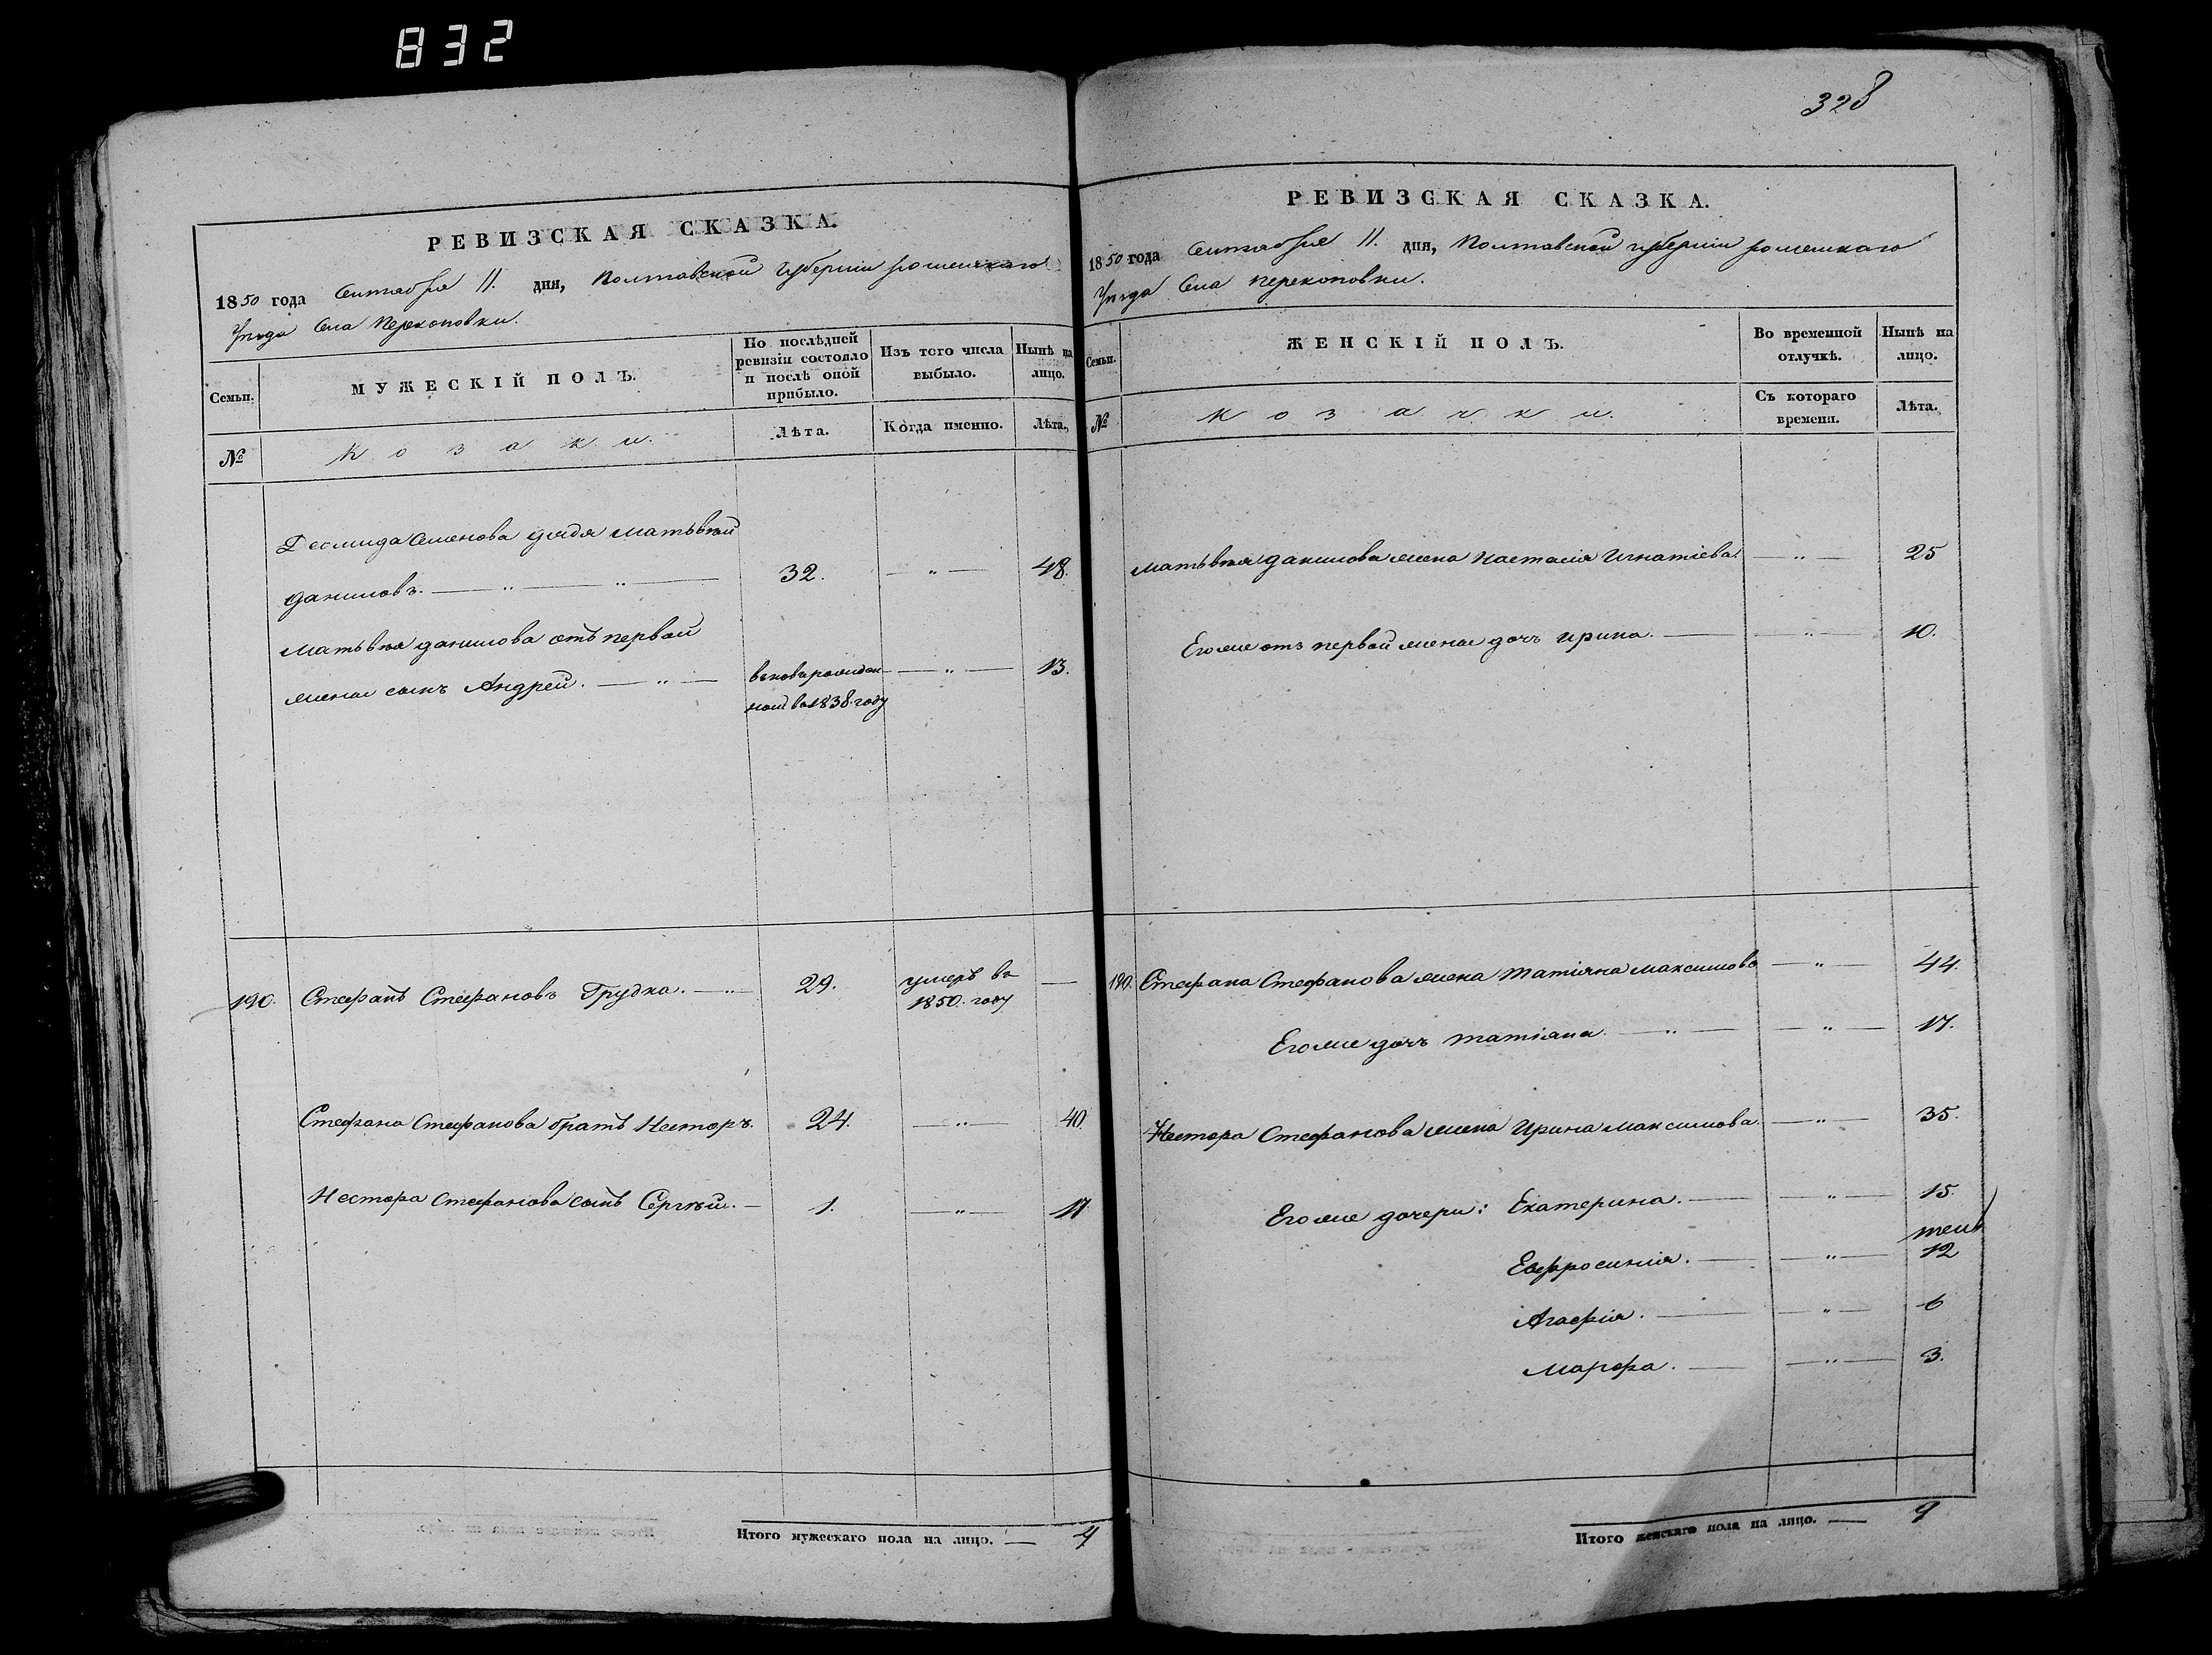 832
328
РЕВИЗСКАЯ СКАЗКА.
1850 года Сентября 11. дня, Полтавской губерніи роменскаго
Уезда Села Перекоповки.
Семьи.
МУЖЕСКІЙ ПОЛЪ.
По послѣдней ревизіи состояло и послѣ оной прибыло.
Изъ того числа выбыло.
Нынѣ на лицо.
№
Козаки.
Лѣта.
Когда именно.
Лѣта.
Демида Семенова дядя матьвѣй
даниловъ. — „ — „ — 32. — „ — 48.
матьвѣя данилова отъ первой
жены сынъ Андрей. — „ — вновьрожден — „ — 13.
ной во 1838 году
190. Стефанъ Стефановъ Грудка. — „ — 29. умеръ въ —
1850. году
Стефана Стефанова братъ Несторъ. 24. — „ — 40.
Нестора Стефанова сынъ Сергѣй. — 1. — „ — 17
Итого мужескаго пола на лицо. — 4
РЕВИЗСКАЯ СКАЗКА.
1850 года Сентября 11. дня, Полтавской губерніи роменскаго
Уезда Села Перекоповки.
Семьи.
ЖЕНСКІЙ ПОЛЪ.
Во временной отлучкѣ.
Нынѣ на лицо.
№
Козачки.
Съ котораго времени.
Лѣта.
матьвѣя данилова жена Настасія Игнатіева. — „ — 25
Егоже отъ первой жены дочь Ирина. — „ — 10.
190. Стефана Стефанова жена Татіяна Максимова — „ — 44.
Егоже дочь Татіяна. — „ — „ — 17.
Нестора Стефанова жена Ирина Максимова. — „ — 35.
Егоже дочери: Екатерина. — „ — 15.
Евфросинія. — „ — 12
Агафія. — „ — 6
Марфа. — „ — 3.
Итого женскаго пола на лицо. — 9